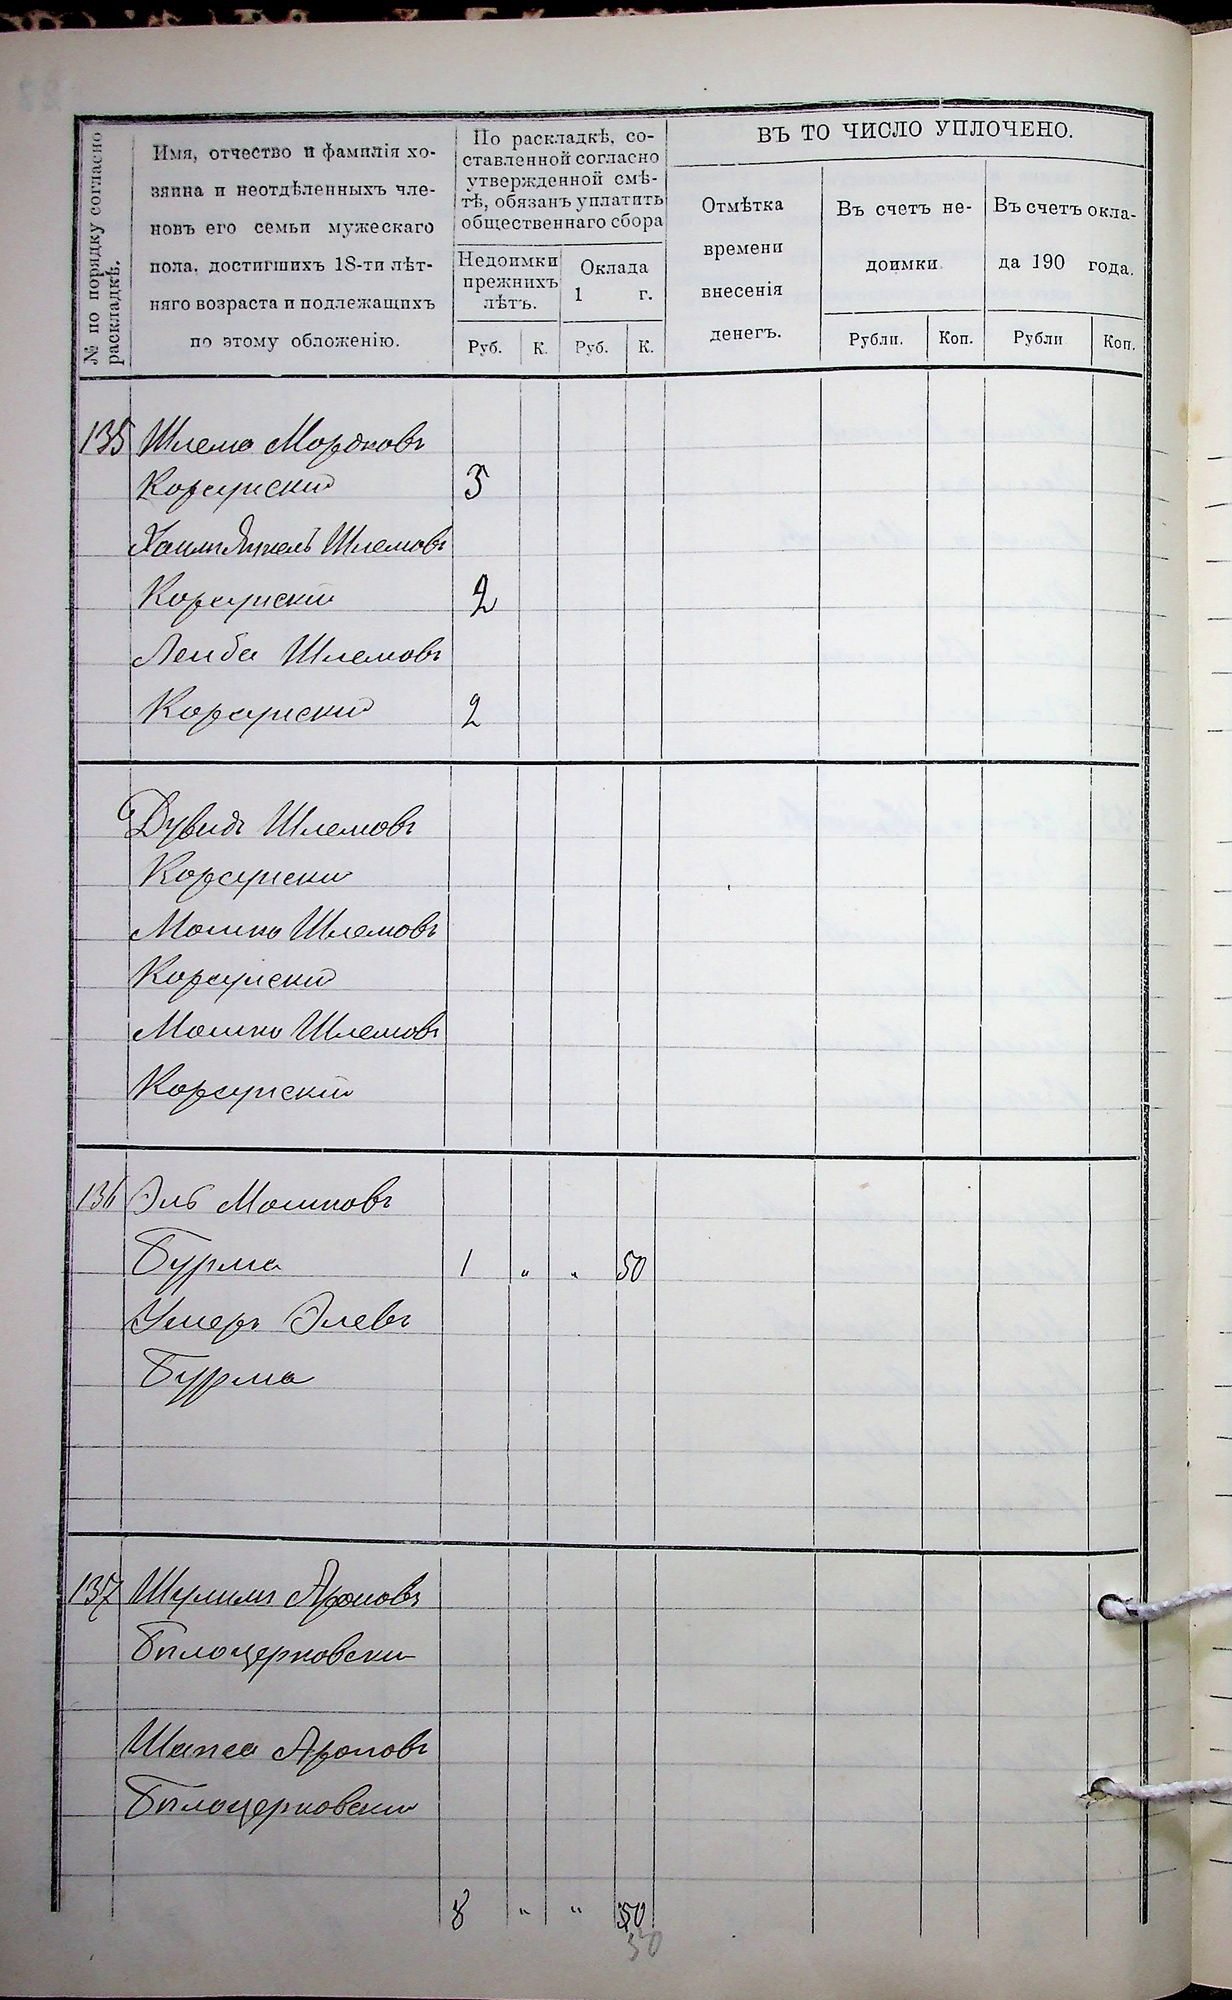 № по порядку согласно раскладкѣ.
Имя, отчество и фамилія хо-
зяина и неотдѣленныхъ чле-
новъ его семьи мужескаго
пола, достигшихъ 18-ти лѣт-
няго возраста и подлежащихъ
по этому обложенію.
По раскладкѣ, со-
ставленной согласно
утвержденной смѣ-
тѣ, обязанъ уплатить
общественнаго сбора
Недоимки
прежнихъ
лѣтъ.
Оклада
1 г.
Руб. К. Руб. К.
ВЪ ТО ЧИСЛО УПЛОЧЕНО.
Отмѣтка
времени
внесенія
денегъ.
Въ счетъ не-
доимки.
Въ счетъ окла-
да 190 года.
Рубли. Коп. Рубли Коп.
135 Шлема Мордковъ
Корсунскій 3
Хаимъ Янкель Шлемовъ
Корсунскій 2
Лейба Шлемовъ
Корсунскій 2
Дувидъ Шлемовъ
Корсунскій
Мошко Шлемовъ
Корсунскій
Мошко Шлемовъ
Корсунскій
136 Эль Мошковъ
Бурма 1 " " 50
Умеръ Элевъ
Бурма
137 Шулимъ Ароновъ
Билоцерковски
Шапса Ароновъ
Билоцерковски
8 " " 50
50